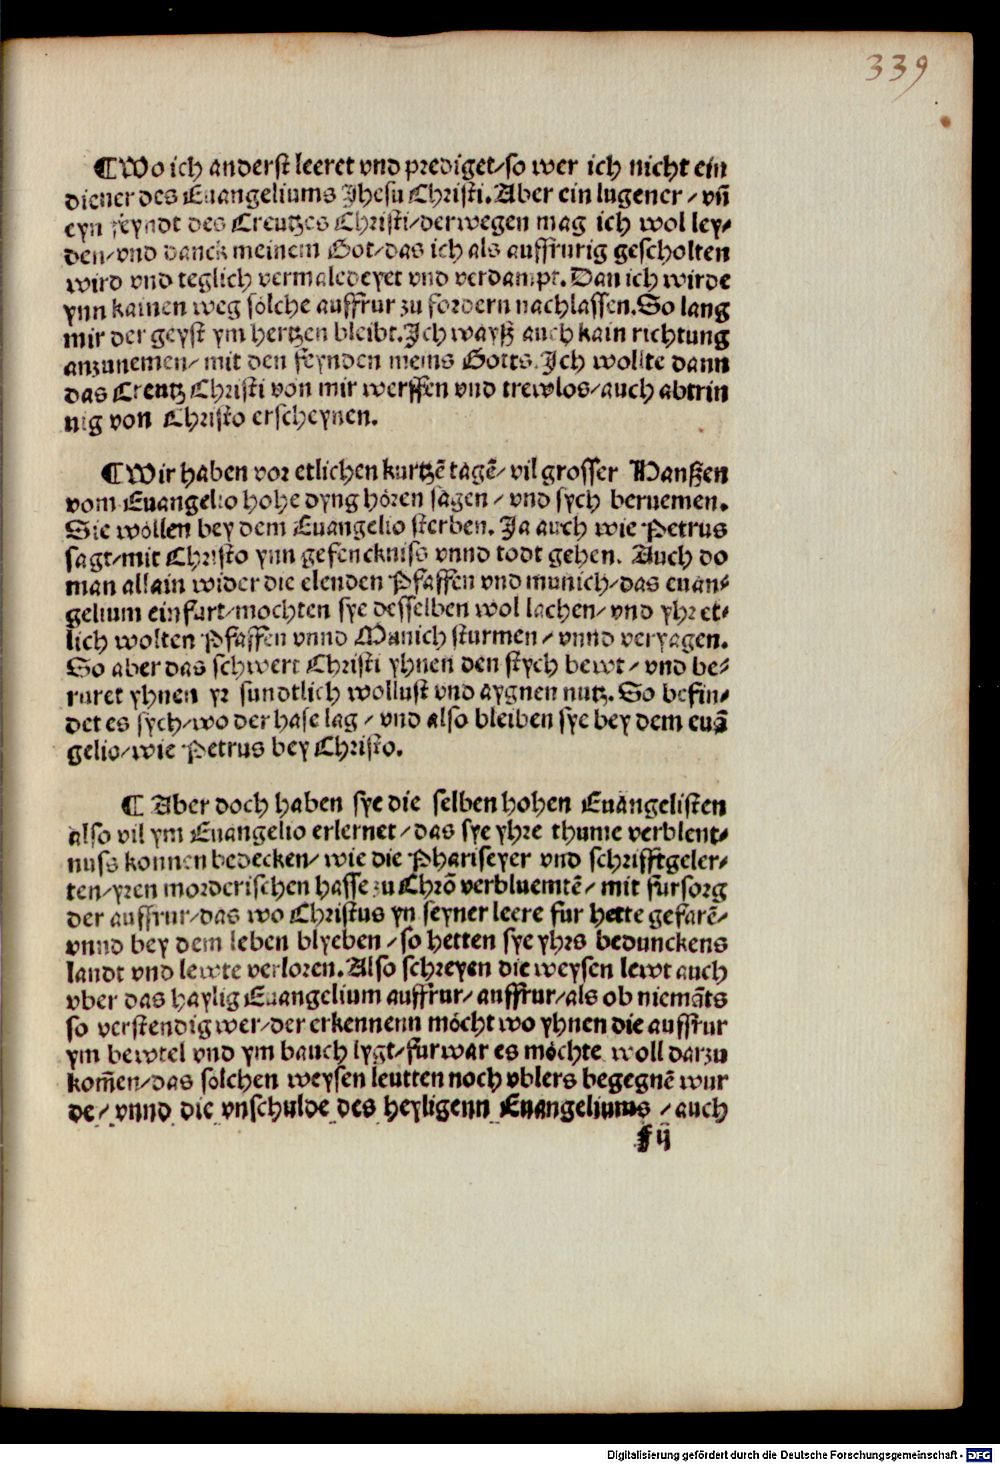 339
¶Wo ich anderst leeret vnd prediget/so wer ich nicht ein
diener des Euangeliums Jhesu Christi.Aber ein lugener/vñ
eyn feyndt des Creutzes Christi/derwegen mag ich wol ley⸗
den/vnd danck meinem Got/das ich als auffrurig gescholten
wird vnd teglich vermaledeyet vnd verdampt.Dan ich wirde
ynn kainen weg sölche auffrur zu fordern nachlassen.So lang
mir der geyst ym hertzen bleibt.Jch wayß auch kain richtung
anzunemen/mit den feynden meins Gotts.Jch wollte dann
das Creutz Christi von mir werffen vnd trewlos/auch abtrin
nig von Christo erscheynen.
¶Wir haben vor etlichen kurtzē tagē/vil grosser Hanßen
vom Euangelio hohe dyng hören sagen/vnd sych beruemen.
Sie wöllen bey dem Euangelio sterben. Ja auch wie Petrus
sagt/mit Christo ynn gefenckniss vnnd todt gehen. Auch do
man allain wider die elenden Pfaffen vnd munich/das euan⸗
gelium einfurt/mochten sye desselben wol lachen/vnd yhr et⸗
lich wolten Pfaffen vnnd Manich sturmen/vnnd veryagen.
So aber das schwert Christi yhnen den stych bewt/vnd be⸗
ruret yhnen yr sundtlich wollust vnd aygnen nutz.So befin⸗
det es sych/wo der hase lag/vnd also bleiben sye bey dem euā
gelio/wie Petrus bey Christo.
¶ Aber doch haben sye die selben hohen Euangelisten
also vil ym Euangelio erlernet/das sye yhre thume verblent⸗
nuss konnen bedecken/wie die Phariseyer vnd schrifftgeler⸗
ten/yren morderischen hasse zu Chrō verbluemtē/mit fursorg
der auffrur/das wo Christus yn seyner leere fur hette gefarē/
vnnd bey dem leben blyeben/so hetten sye yhrs beduncken​s
landt vnd lewte verloren.Also schreyen die weysen lewt auch
vber das haylig Euangelium auffrur/auffrur/als ob niemāts
so verstendig wer/der erkennenn möcht wo yhnen die auffrur
ym bewtel vnd ym bauch lygt/furwar es möchte woll darzu
kom̄en/das solchen weysen leutten noch vblers begegnē wur
de/vnnd die vnschulde des heyligenn Euangeliums/auch
f ij
Digitalisierung gefördert durch die Deutsche Forschungsgemeinschaft - DFG